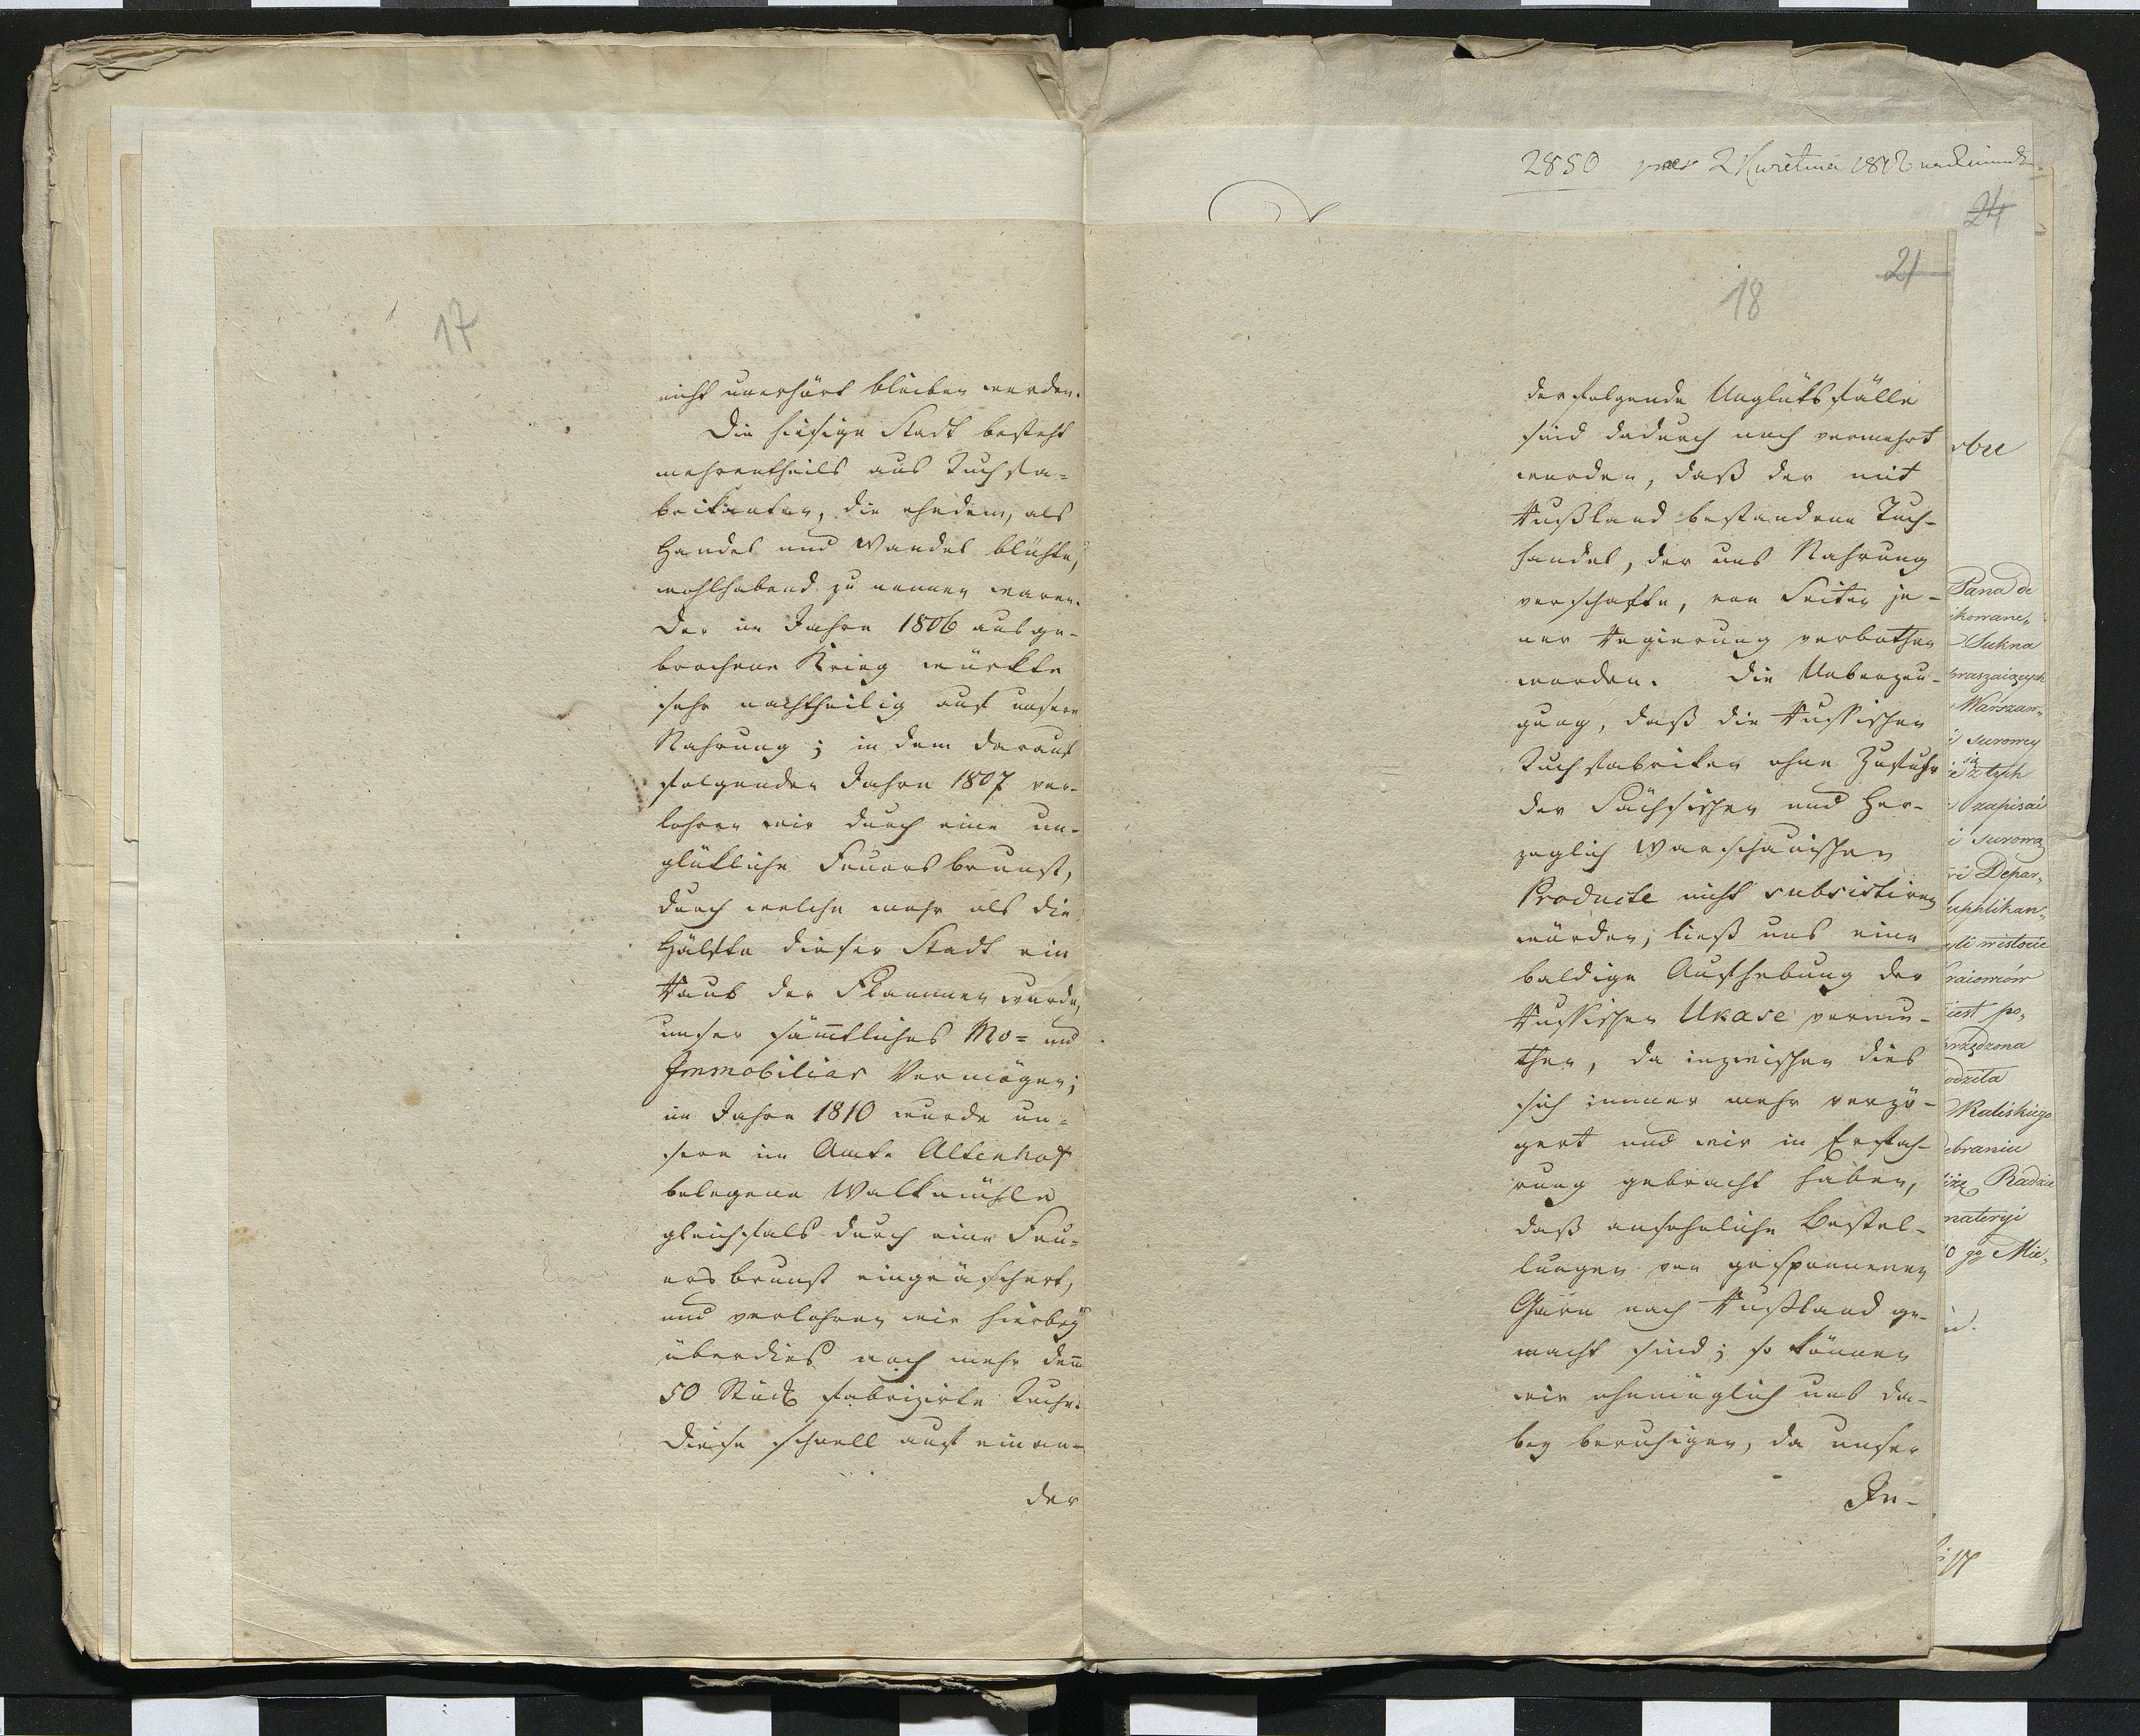 17
nicht unerhört bleiben werden.
Die hiesige Stadt besteht
mehrentheils aus Tuchfa-
brikanten, die ehedem, als
Handel und Wandel blühte,
wohlhabend zu nennen waren.
Der im Jahre 1806 ausge-
brochene Krieg würckte
sehr nachtheilig auf unsere
Nahrung; in dem darauf
folgenden Jahre 1807 ver-
lohren wir durch eine un-
glükliche Feuersbrunst,
durch welche mehr als die
Hälfte dieser Stadt ein
Raub der Flammen wurde,
unser sämtliches Mo= und
Immobiliar Vermögen;
im Jahre 1810 wurde un=
sere im Amte Altenhof
belegene Walkmühle
gleichfals durch eine Feu=
ersbrunst eingeäschert,
und verlohren wir hierbey
überdies noch mehr denn
50 Stück fabrizirte Tuche.
Diese schnell auf einan-
der
2850 2 Kwietnia 1812
24
21
18
der folgende Unglüksfälle
sind dadurch noch vermehrt
worden, daß der mit
Rußland bestandene Tuch-
handel, der uns Nahrung
verschafte, von Seiten je-
ner Regierung verbothen
worden. Die Ueberzeu-
gung, daß die Russischen
Tuchfabriken ohne Zufuhr
der Sächsischen und Her-
zoglich Warschauischen
Producte nicht subsistiren
würden, ließ uns eine
baldige Aufhebung der
Russischen Ukase vermu-
then, da inzwischen dies
sich immer mehr verzö-
gert und wir in Erfah-
rung gebracht haben,
daß ansehnliche Bestel-
lungen von gesponnenen
Garn nach Rußland ge-
macht sind; so können
wir ohnmöglich uns da-
bey beruhigen, da unser
In-
Pana de
ikowane„
Sukna
praszaiących
Warszaw„
i surowey
się
z tych
zapisai
i surowa
ri Depar„
upplikan„
yli wistocie
kraiowców
iest po„
przędzona
odziła
Kaliskiego
ebraniu
Radzie
materyi
go Mie„